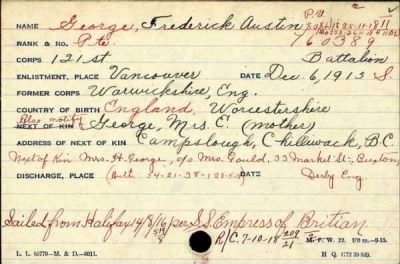 P.V.
NAME George, Frederick Austin
RANK & NO. Pte. 760389
CORPS 121st Battalion
ENLISTMENT, PLACE Vancouver DATE Dec. 6, 1915 S.
FORMER CORPS Warwickshire, Eng.
COUNTRY OF BIRTH England, Worcestershire
Also notify
NEXT OF KIN George, Mrs. E. (mother)
ADDRESS OF NEXT OF KIN Campslough, Chilliwack, B.C.
Next of Kin Mrs. H. George, c/o Mrs. Gould, 33 Market St., Buxton,
DISCHARGE, PLACE (Auth. 54-21-38-128-50) DATE Derby Eng
Sailed from Halifax 14/8/16 per S.S. Empress of Britian
R/C. 7-10-18
L. L. M. F. W. 22.
H. Q.